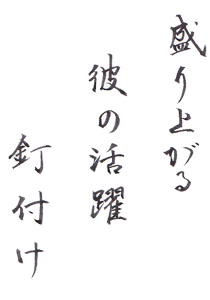 盛り上がる
彼の活躍
釘付け